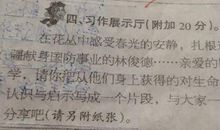 四、习作展示厅(附加 20 分)。
在花丛中感受春光的安静,扎根
献身国防事业的林俊德……亲爱的
学,请你把从他们身上获得的对生命
认识与启示写成一个片段,与大家
分享吧(请另附纸张)。